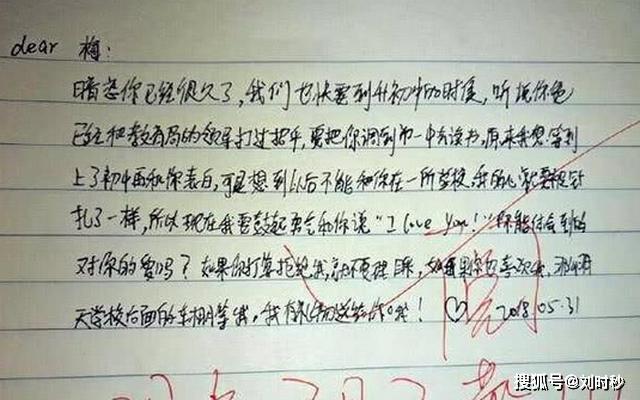 dear 梅:
暗恋你已经很久了,我们也快要到升初中的时候,听说你爸
已经和教育局的领导打过招呼,要把你调到市一中去读书,原来我想等到
上了初中再和你表白,可是想到以后不能和你在一所学校,我的心就要被针
扎了一样,所以现在我要鼓起勇气和你说“I love you!”你能体会到我
对你的爱吗?如果你打算拒绝我,就不要理睬,如果你也喜欢我,那明
天学校后面的车棚等我,我有礼物送给你哦! ♡ 2018.05.31
阅
搜狐号@刘时秒